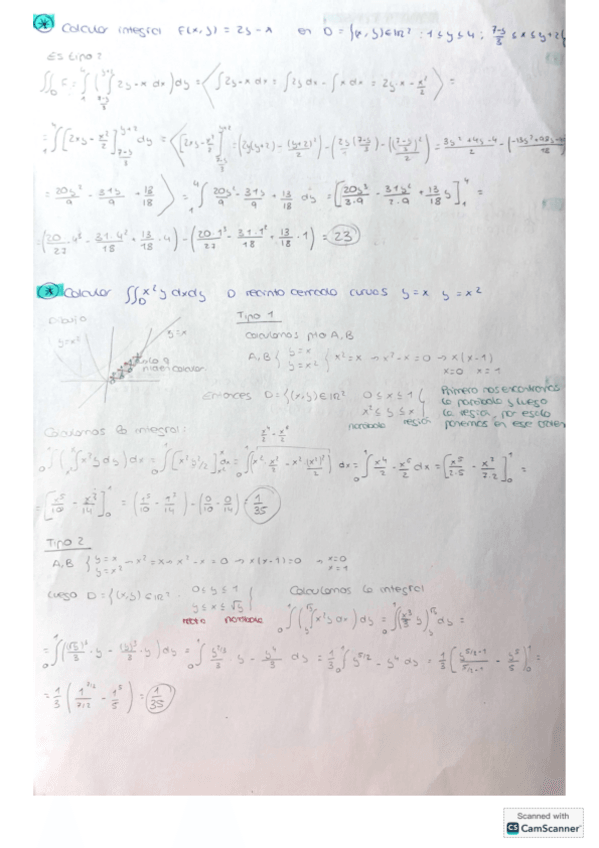 * Calcular integral F(x,y) = 2y - x en D = {(x,y) ∈ ℝ² : 1 ≤ y ≤ 4 ; (7-y)/3 ≤ x ≤ y+2}
Es tipo 2
= ∫ [2xy - x²/2] dy =
= 20y²/9 - 31y/9 + 13/18 > = ₁∫⁴ 20y²/9 - 31y/9 + 13/18 dy = [20y³/3·9 - 31y²/2·9 + 13/18 y]₁⁴ =
= (20/27 · 4³ - 31·4²/18 + 13/18 · 4) - (20·1³/27 - 31·1²/18 + 13/18 · 1) = 23
* Calcular ∬_D x²y dxdy D recinto cerrado curvas y=x y=x²
Dibujo
Tipo 1
y=x²
y=x
Calculamos pto A, B
A, B { y=x y=x² { x²=x → x²-x=0 → x(x-1)
x=0 x=1
Entonces D = {(x,y) ∈ ℝ² 0 ≤ x ≤ 1
x² ≤ y ≤ x
parábola recta
Primero nos encontramos
la parábola y luego
la recta, por eso lo
ponemos en ese orden
Calculamos la integral:
₀∫¹ (∫ x²y dy) dx = ₀∫¹ [x² y²/2] dx = ₀∫¹ (x² · x²/2 - x² · (x²)²/2) dx = ₀∫¹ x⁴/2 - x⁶/2 dx = [x⁵/2·5 - x⁷/7·2]₀¹ =
= [x⁵/10 - x⁷/14]₀¹ = (1⁵/10 - 1⁷/14) - (0/10 - 0/14) = 1/35
Tipo 2
A, B { y=x y=x² → x²=x → x²-x=0 → x(x-1)=0 → x=0 x=1
Luego D = {(x,y) ∈ ℝ² · 0 ≤ y ≤ 1
y ≤ x ≤ √y
recta parábola
Calculamos la integral
₀∫¹ (∫ x²y dx) dy = ₀∫¹ (x³/3 y) dy =
= ₀∫¹ ((√y)³/3 · y - (y)³/3 · y) dy = ₀∫¹ y^(3/2)/3 y - y⁴/3 dy = 1/3 ₀∫¹ y^(5/2) - y⁴ dy = 1/3 [y^(5/2+1)/(5/2+1) - y⁵/5]₀¹ =
= 1/3 (1^(7/2)/(7/2) - 1⁵/5) = 1/35
Scanned with
CS CamScanner